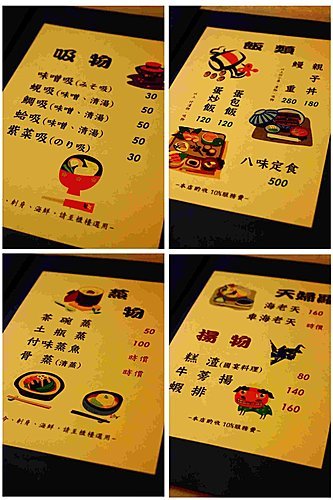 吸物
味噌吸(みそ吸) 30
蜆吸(味噌、清湯) 50
鯛吸(味噌、清湯) 50
蛤吸(味噌、清湯) 50
紫菜吸(のり吸) 30
、刺身、海鮮、請至櫃檯選用~
飯類
親子丼 180
鰻重 280
蛋包飯 120
蛋炒飯 120
八味定食
500
~本店酌收10%服務費~
蒸物
茶碗蒸 50
土瓶蒸 100
付味蒸魚 時價
骨蒸(清蒸) 時價
、刺身、海鮮、請至櫃檯選用~
天婦羅
海老天 160
車海老天 時價
揚物
糕渣(國宴料理) 80
牛蒡揚 140
蝦排 160
~本店酌收10%服務費~